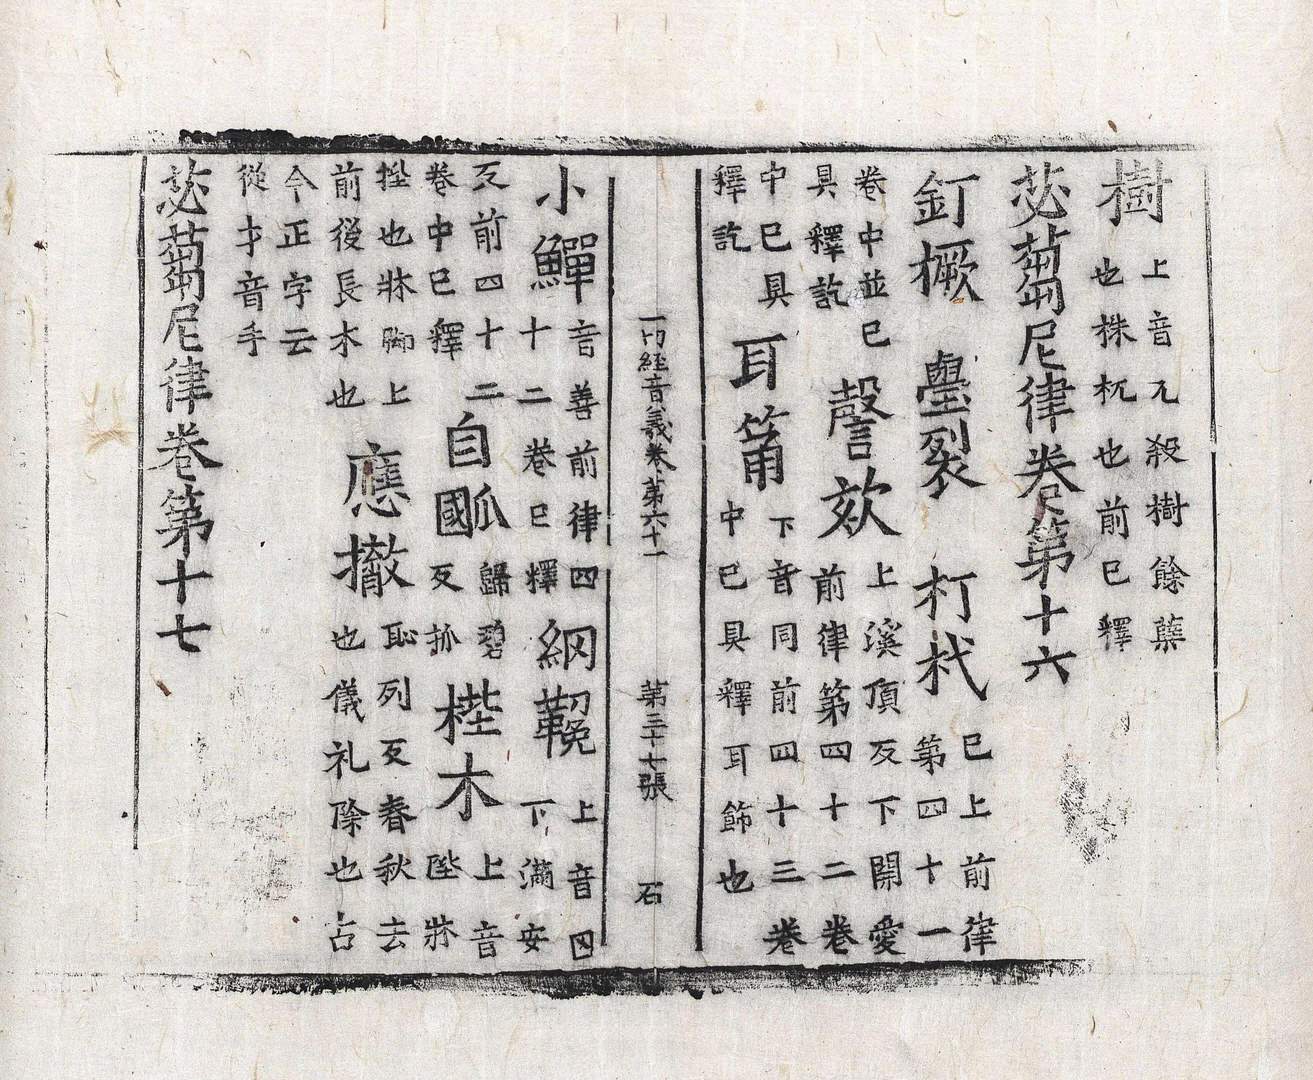 樹 上音兀殺樹餘蘖
也株杌也前已釋
苾蒭尼律卷第十六
釘橛 壘裂 朾杙 已上前律
第四十一
卷中並已
具釋訖 謦欬 上溪頂反下開愛
前律第四十二卷
中已具
釋訖 耳 下音同前四十三卷
中已具釋耳飾也
一切經音義卷第六十一 第三十七張 石
小鱓 音善前律四
十二卷已釋 綱鞔 上音
下滿安
反前四十二
卷中已釋 自 歸碧
反抓 梐木 上音
陛牀
梐也牀脚上
前後長木也 應撤 恥列反春秋去
也儀礼除也古
今正字云
從扌音手
苾蒭尼律卷第十七